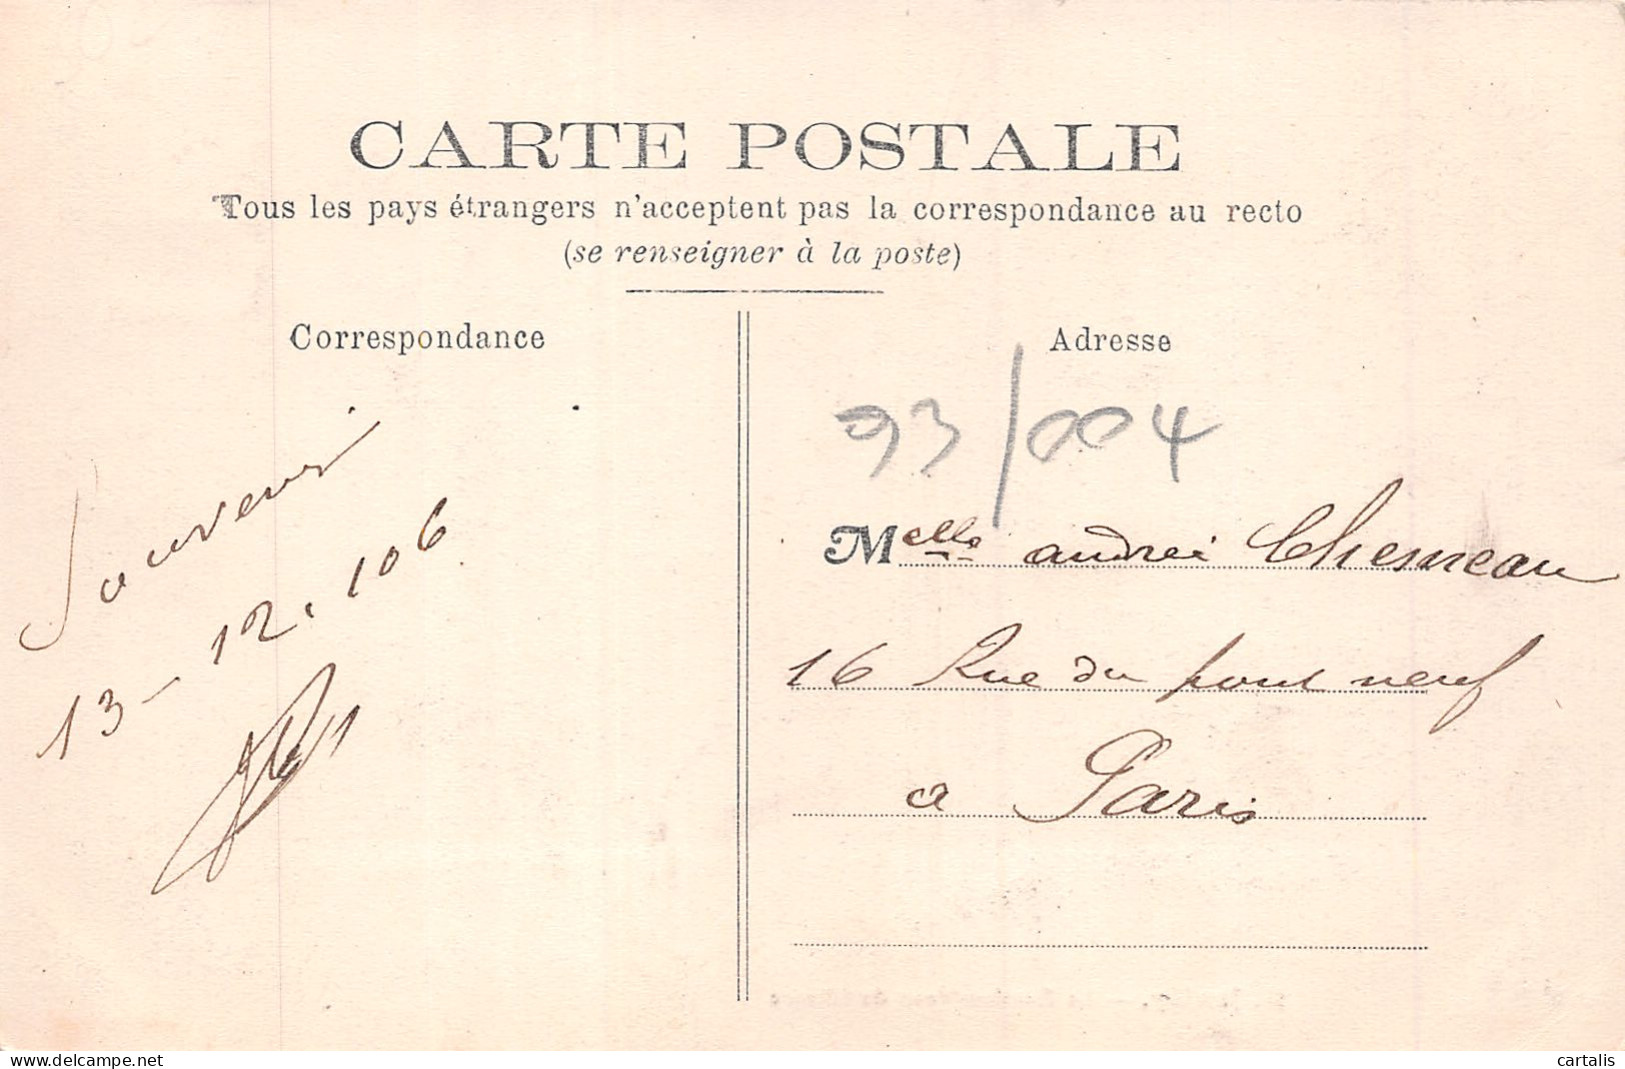 CARTE POSTALE
Tous les pays étrangers n'acceptent pas la correspondance au recto
(se renseigner à la poste)
Correspondance
Souvenir
13-12.106
Adresse
93/004
Melle andrei Chesneau
16 Rue du pont neuf
a Paris
www.delcampe.net
cartalis